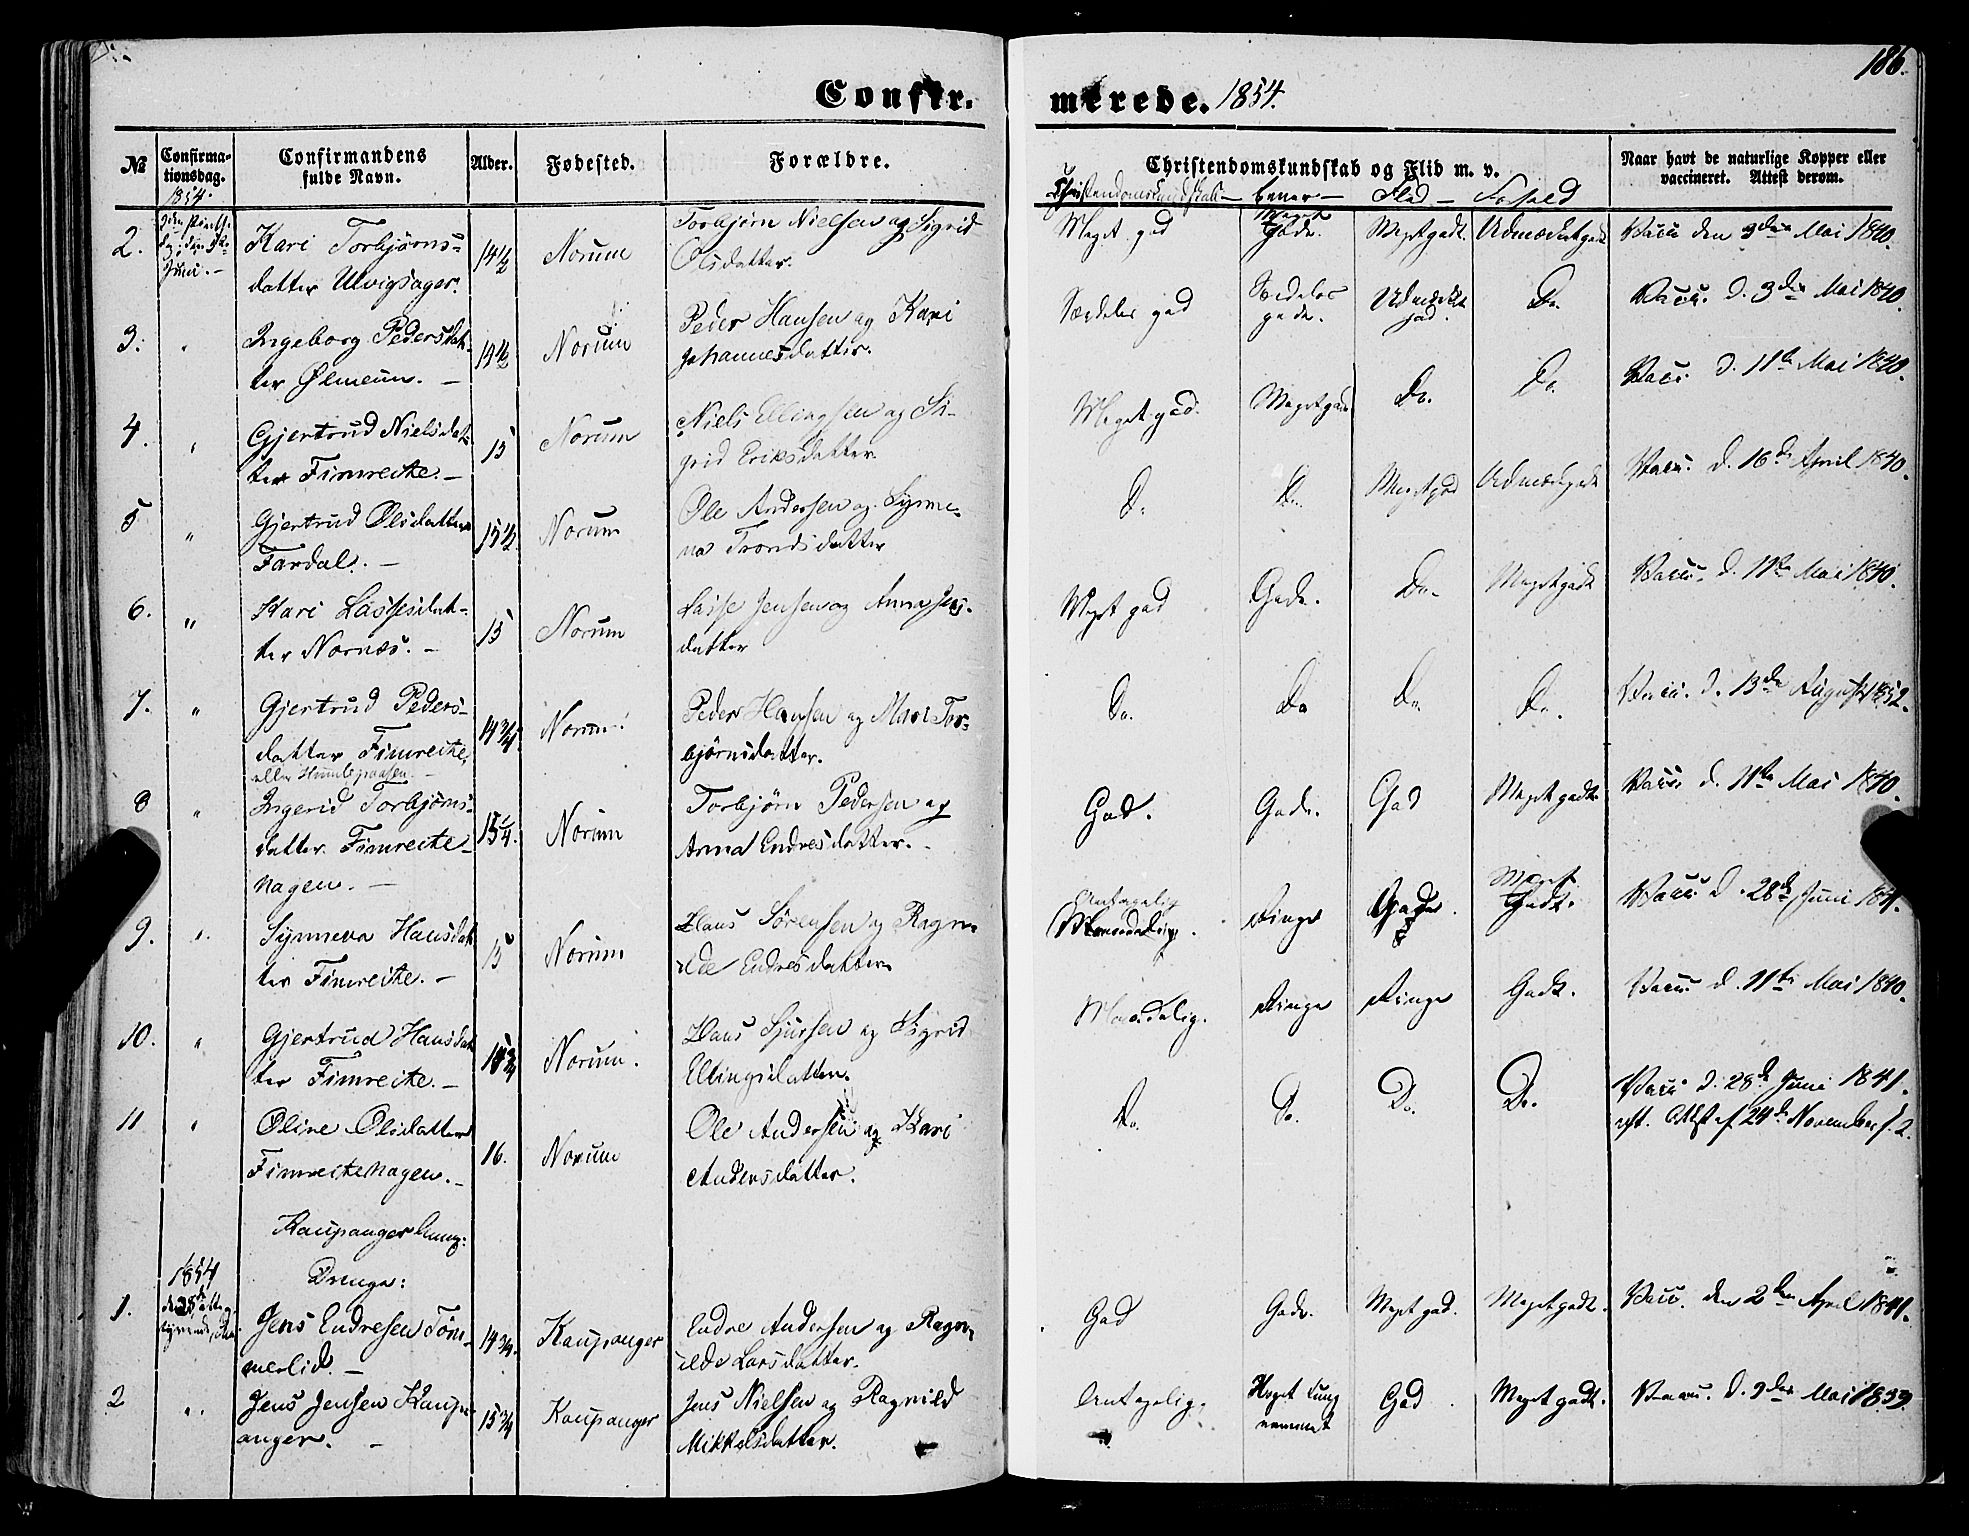 186.
Confir-
merede. 1854.
№
Confirma-
tionsdag.
Confirmandens
fulde Navn.
Alder.
Fødested.
Forældre.
Christendomskundskab og Flid m. v.
Naar havt de naturlige Kopper eller
vaccineret. Attest derom.
1854.
Christendomskundskab — Evner — Flid — Forhold
2.
Juni.
Kari Torbjørns-
datter Ulvigsager.
14½
Norum
Torbjørn Nielsen og Sigrid
Olsdatter.
Meget god
Meget
Gode.
Meget godt.
Udmærket godt
Vacc. den 3die Mai 1840.
3.
"
Ingeborg Pedersdat-
ter Ølmeim. —
14½
Norum
Peder Hansen og Kari
Johannesdatter.
Særdeles god
Særdeles
gode.
Udmærket
god.
Do.
Vacc. d. 3die Mai 1840.
4.
"
Gjertrud Nielsdat-
ter Fimreite. —
15
Norum
Niels Ellingsen og Si-
grid Eriksdatter
Meget god.
Meget gode
Do.
Do.
Vacc. d. 11te Mai 1840.
5
"
Gjertrud Olsdatter
Fardal. —
15½
Norum
Ole Andersen og Synne-
va Trondsdatter
Do.
Do.
Meget god
Udmærket godt
Vacc. d. 16de April 1840.
6.
"
Kari Lassesdat-
ter Nornæs. —
15
Norum
Lasse Jensen og Anna Jens-
datter
Meget god
Gode.
Do.
Meget godt
Vacc. d. 11te Mai 1840.
7.
"
Gjertrud Peders-
datter Fimreite,
eller Humlegaasen. —
14¾
Norum.
Peder Hansen og Mari Tor-
bjørnsdatter.
Do.
Do
Do.
Do.
Vacc. d. 13de August 1852.
8
"
Ingerid Torbjørns-
datter Fimreite-
hagen. —
15¼.
Norum
Torbjørn Pedersen og
Anna Endresdatter. —
God.
Gode.
God
Meget godt
Vacc. d. 11te Mai 1840.
9.
"
Synneva Hansdat-
ter Fimreite. —
15
Norum
Hans Sørensen og Ragn-
ilde Endresdatter
Antagelig
Ringe
Meget
Godt.
Vacc. d. 28de Juni 1841.
10.
"
Gjertrud Hansdat-
ter Fimreite. —
Norum.
Hans Sjursen og Sigrid
Ellingsdatter.
Maadelig.
Ringe
Ringe
Godt.
Vacc. d. 11te Mai 1840.
11
"
Oline Olsdatter
Fimreitehagen. —
16.
Norum
Ole Andersen og Kari
Andersdatter.
Do.
Do.
Do.
Do.
Vacc. d. 28de Juni 1841.
eft. Attst af 24de November f. A.
Kaupanger Annex:
Drenge:
1854
1.
Jens Endresen Tøm-
merlid. —
14¾.
Kaupanger
Endre Andersen og Ragn-
ilde Larsdatter.
God
Gode.
Meget god.
Meget godt.
Vacc. den 2den April 1841.
2
"
Jens Jensen Kaup-
anger. —
15¾
Kaupanger
Jens Nielsen og Ragnild
Mikkelsdatter.
Antagelig.
Meget tung
nemmet
God
Meget godt.
Vacc. d. 9de Mai 1839.